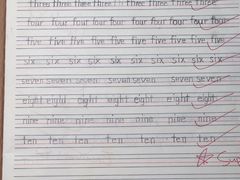 three three three three three three three three
four four four four four four four four four
five five five five five five five five five
six six six six six six six six six
seven seven seven seven seven seven seven
eight eight eight eight eight eight eight
nine nine nine nine nine nine nine
ten ten ten ten ten ten ten